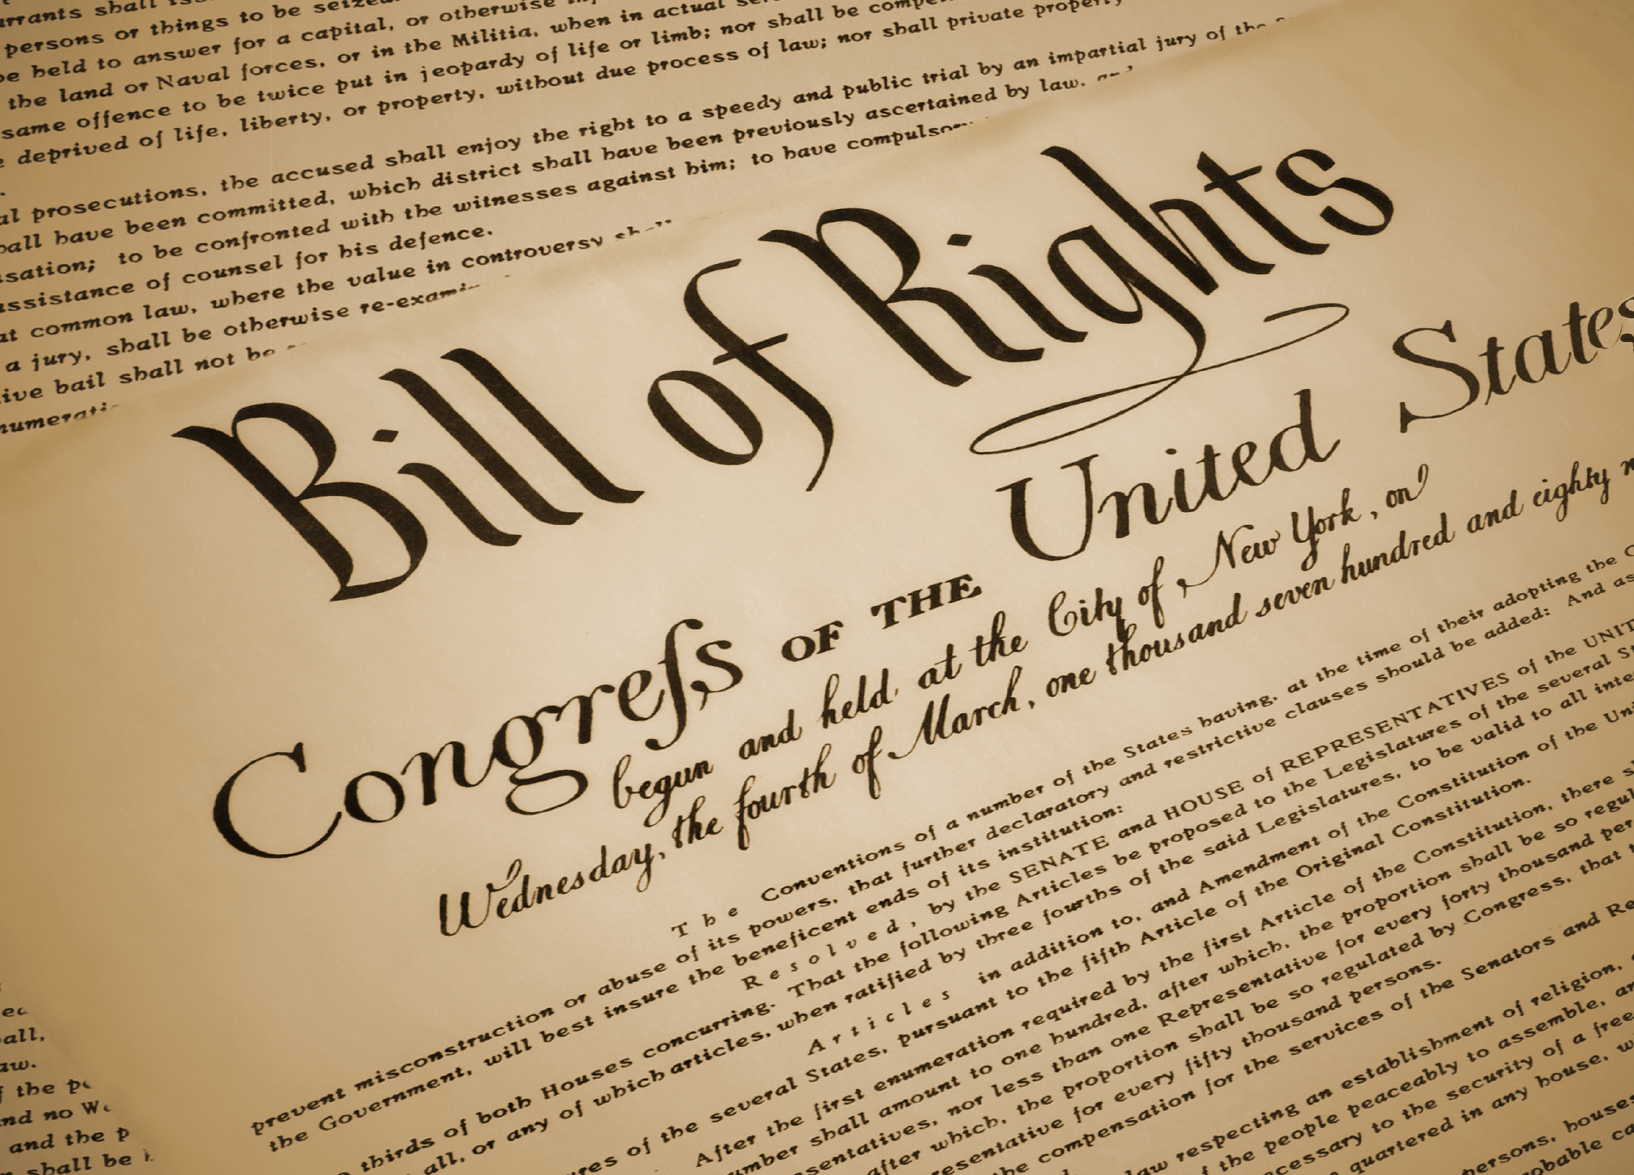 persons or things to be seized
be held to answer for a capital, or otherwise
the land or Naval forces, or in the Militia, when in actual
same offence to be twice put in jeopardy of life or limb; nor shall be
deprived of life, liberty, or property, without due process of law; nor shall private property
prosecutions, the accused shall enjoy the right to a speedy and public trial by an impartial jury of the
have been committed, which district shall have been previously ascertained by law, and
to be confronted with the witnesses against him; to have
assistance of counsel for his defence.
at common law, where the value in controversy
a jury, shall be otherwise
bail shall not be
Bill of Rights
Congreſs OF THE United States
begun and held at the City of New York, on
Wednesday, the fourth of March, one thousand seven hundred and eighty
The Conventions of a number of the States having, at the time of their adopting the
prevent misconstruction or abuse of its powers, that further declaratory and restrictive clauses should be added: And as
the Government, will best insure the beneficent ends of its institution:
Resolved, by the SENATE and HOUSE of REPRESENTATIVES of the
thirds of both Houses concurring. That the following Articles be proposed to the Legislatures of the several
all, or any of which articles, when ratified by three fourths of the said Legislatures, to be valid to all
Articles in addition to, and Amendment of the Constitution of the
of the several States, pursuant to the fifth Article of the Original Constitution.
After the first enumeration required by the first Article of the Constitution, there
shall amount to one hundred, after which, the proportion shall be so
nor less than one Representative for every forty thousand
after which, the proportion shall be so regulated by Congress, that
for every fifty thousand persons.
the compensation for the services of the Senators and
law respecting an establishment of religion,
of the people peaceably to assemble,
to the security of a free
quartered in any house,
houses